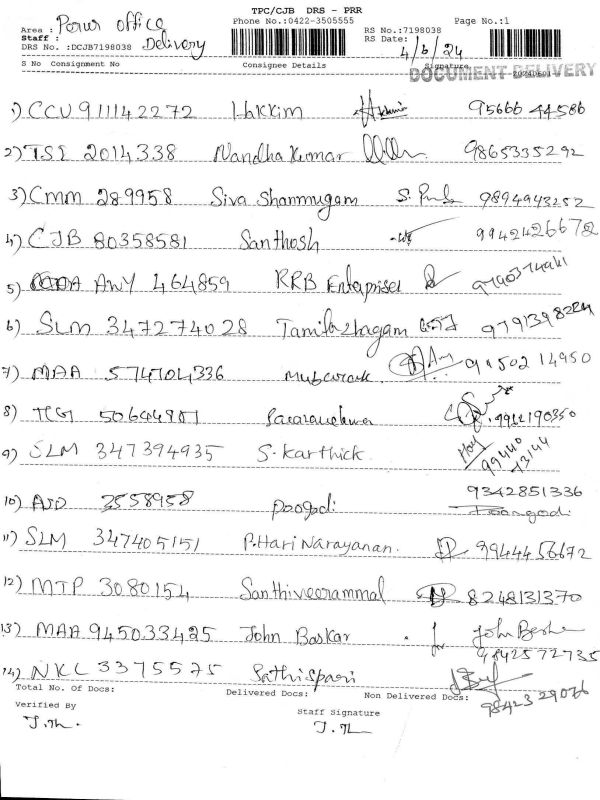 TPC/CJB DRS - PRR
Phone No.:0422-3505555 Page No.:1
Area : Porur office
Staff : Delivery
DRS No. :DCJB7198038
RS No.:7198038
RS Date: 4/6/24
S No Consignment No Consignee Details Signature
DOCUMENT DELIVERY
1) CCU 911142272 Hakkim 95666 44586
2) TSI 2014338 Nandha Kumar 9865335292
3) CMM 289958 Siva Shanmugam 9894943252
4) CJB 80358581 Santhosh 9942426672
5) AWY 464859 RRB Enterprises
6) SLM 347274028 Tamilazhagam
7) MAA 574704336 Mubarak 91502 14950
8) TCG
9) SLM 347394935 S. Karthick 99440 73144
10) 3558958 Poogodi 9342851336
Poongodi
11) SLM 347405151 P. Hari Narayanan. 9944456672
12) MTP 3080154 Santhiveerammal 8248131370
13) MAA 945033425 John Baskar for John
9842572735
14) NKL 3375575
9842329076
Total No. Of Docs: Delivered Docs: Non Delivered Docs:
Verified By Staff Signature